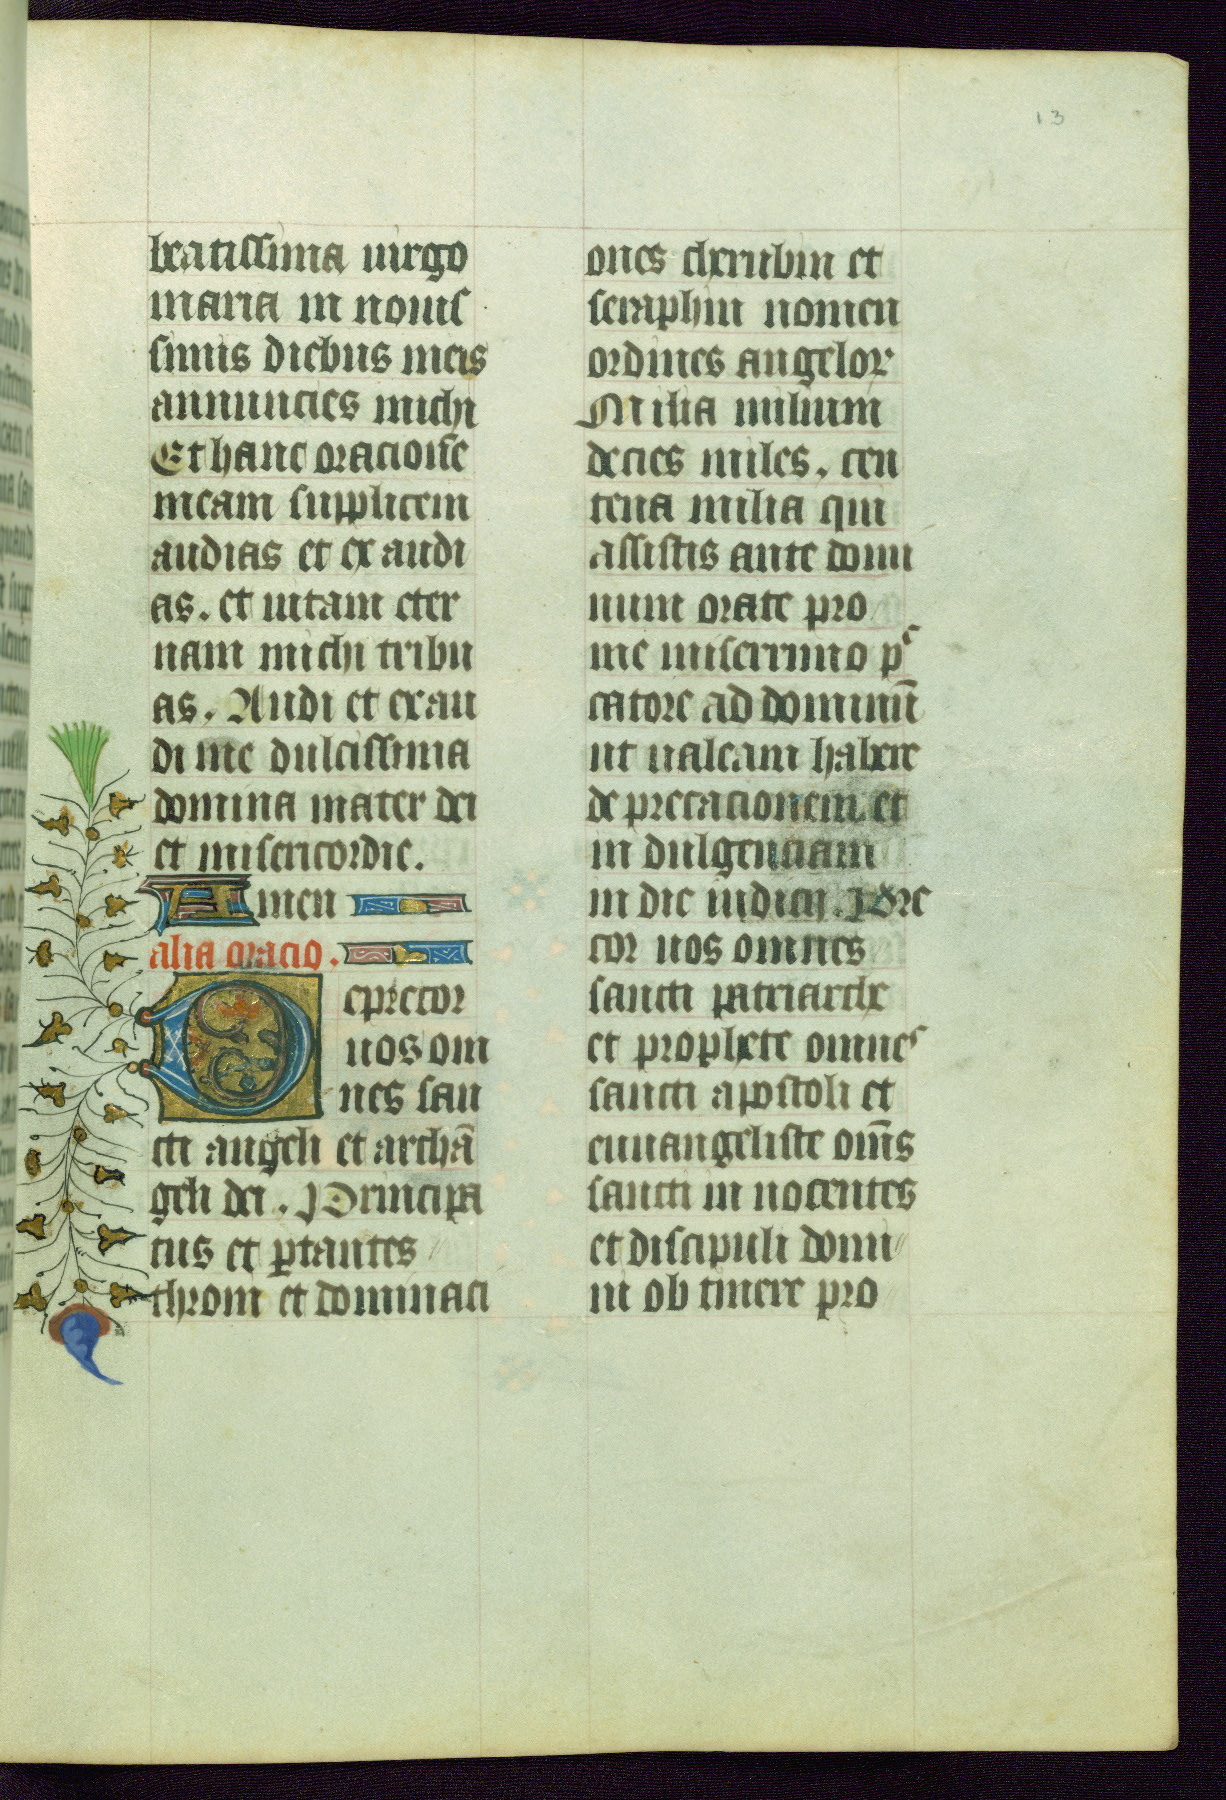 13
beatissima uirgo
maria in nouis
simis diebus meis
annuncies michi
Et hanc oracione
meam supplicem
audias et ex audi
as. et uitam eter
nam michi tribu
as. Audi et exau
di me dulcissima
domina mater dei
et misericordie.
Amen
alia oracio.
Deprecor
uos om
nes san
cti angeli et archā
geli dei. Principa
tus et ptantes
throni et dominaci
ones cherubin et
seraphin nomen
ordines angelor
Milia milium
decies miles. cen
tena milia qui
assistis ante domi
num orate pro
me miserrimo pc
catore ad dominū
ut ualeam habere
de precacionem et
in dulgenciam
in die iudicij. Pre
cor uos omnes
sancti patriarche
et prophete omnes
sancti apostoli et
euuangeliste om̄s
sancti in nocentes
et discipuli domi
ni ob tinere pro